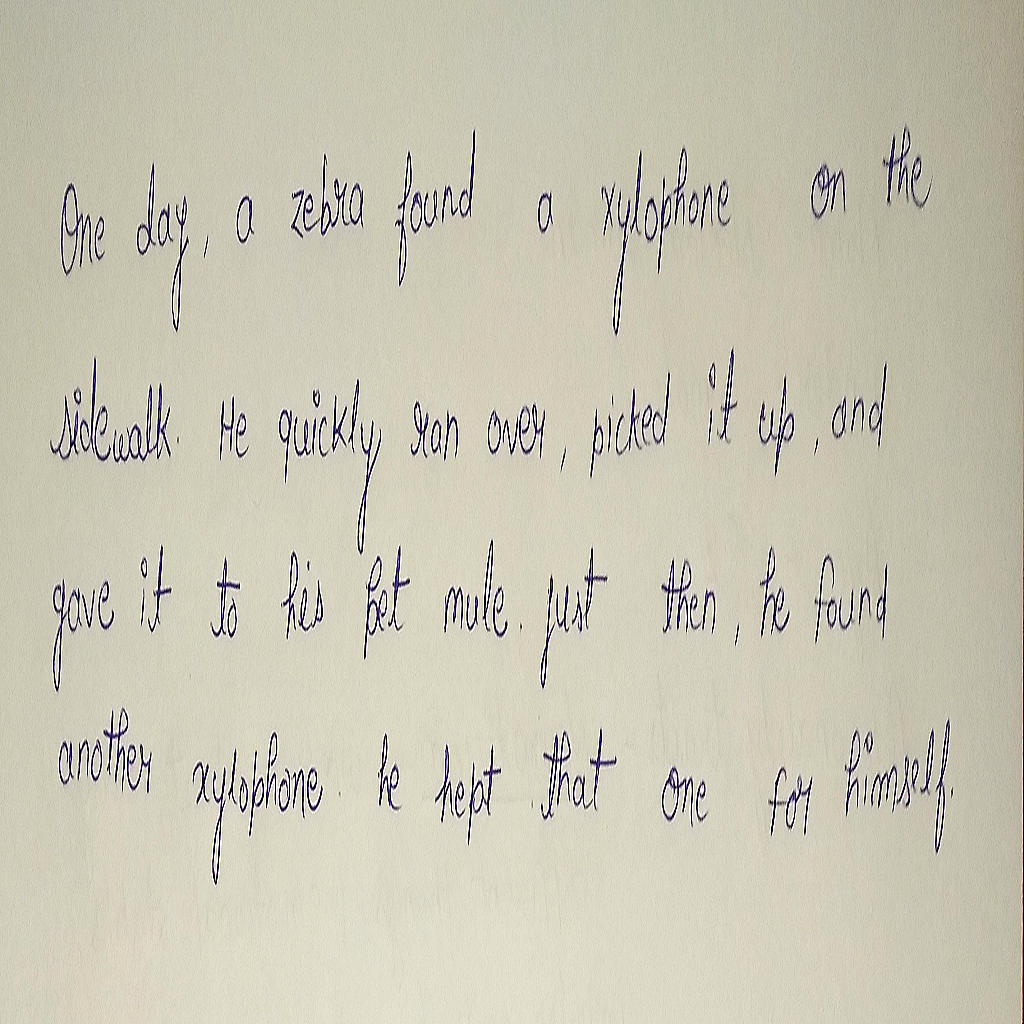 One day, a zebra found a xylophone on the
sidewalk. He quickly ran over, picked it up, and
gave it to his pet mule. just then, he found
another xylophone. he kept that one for himself.